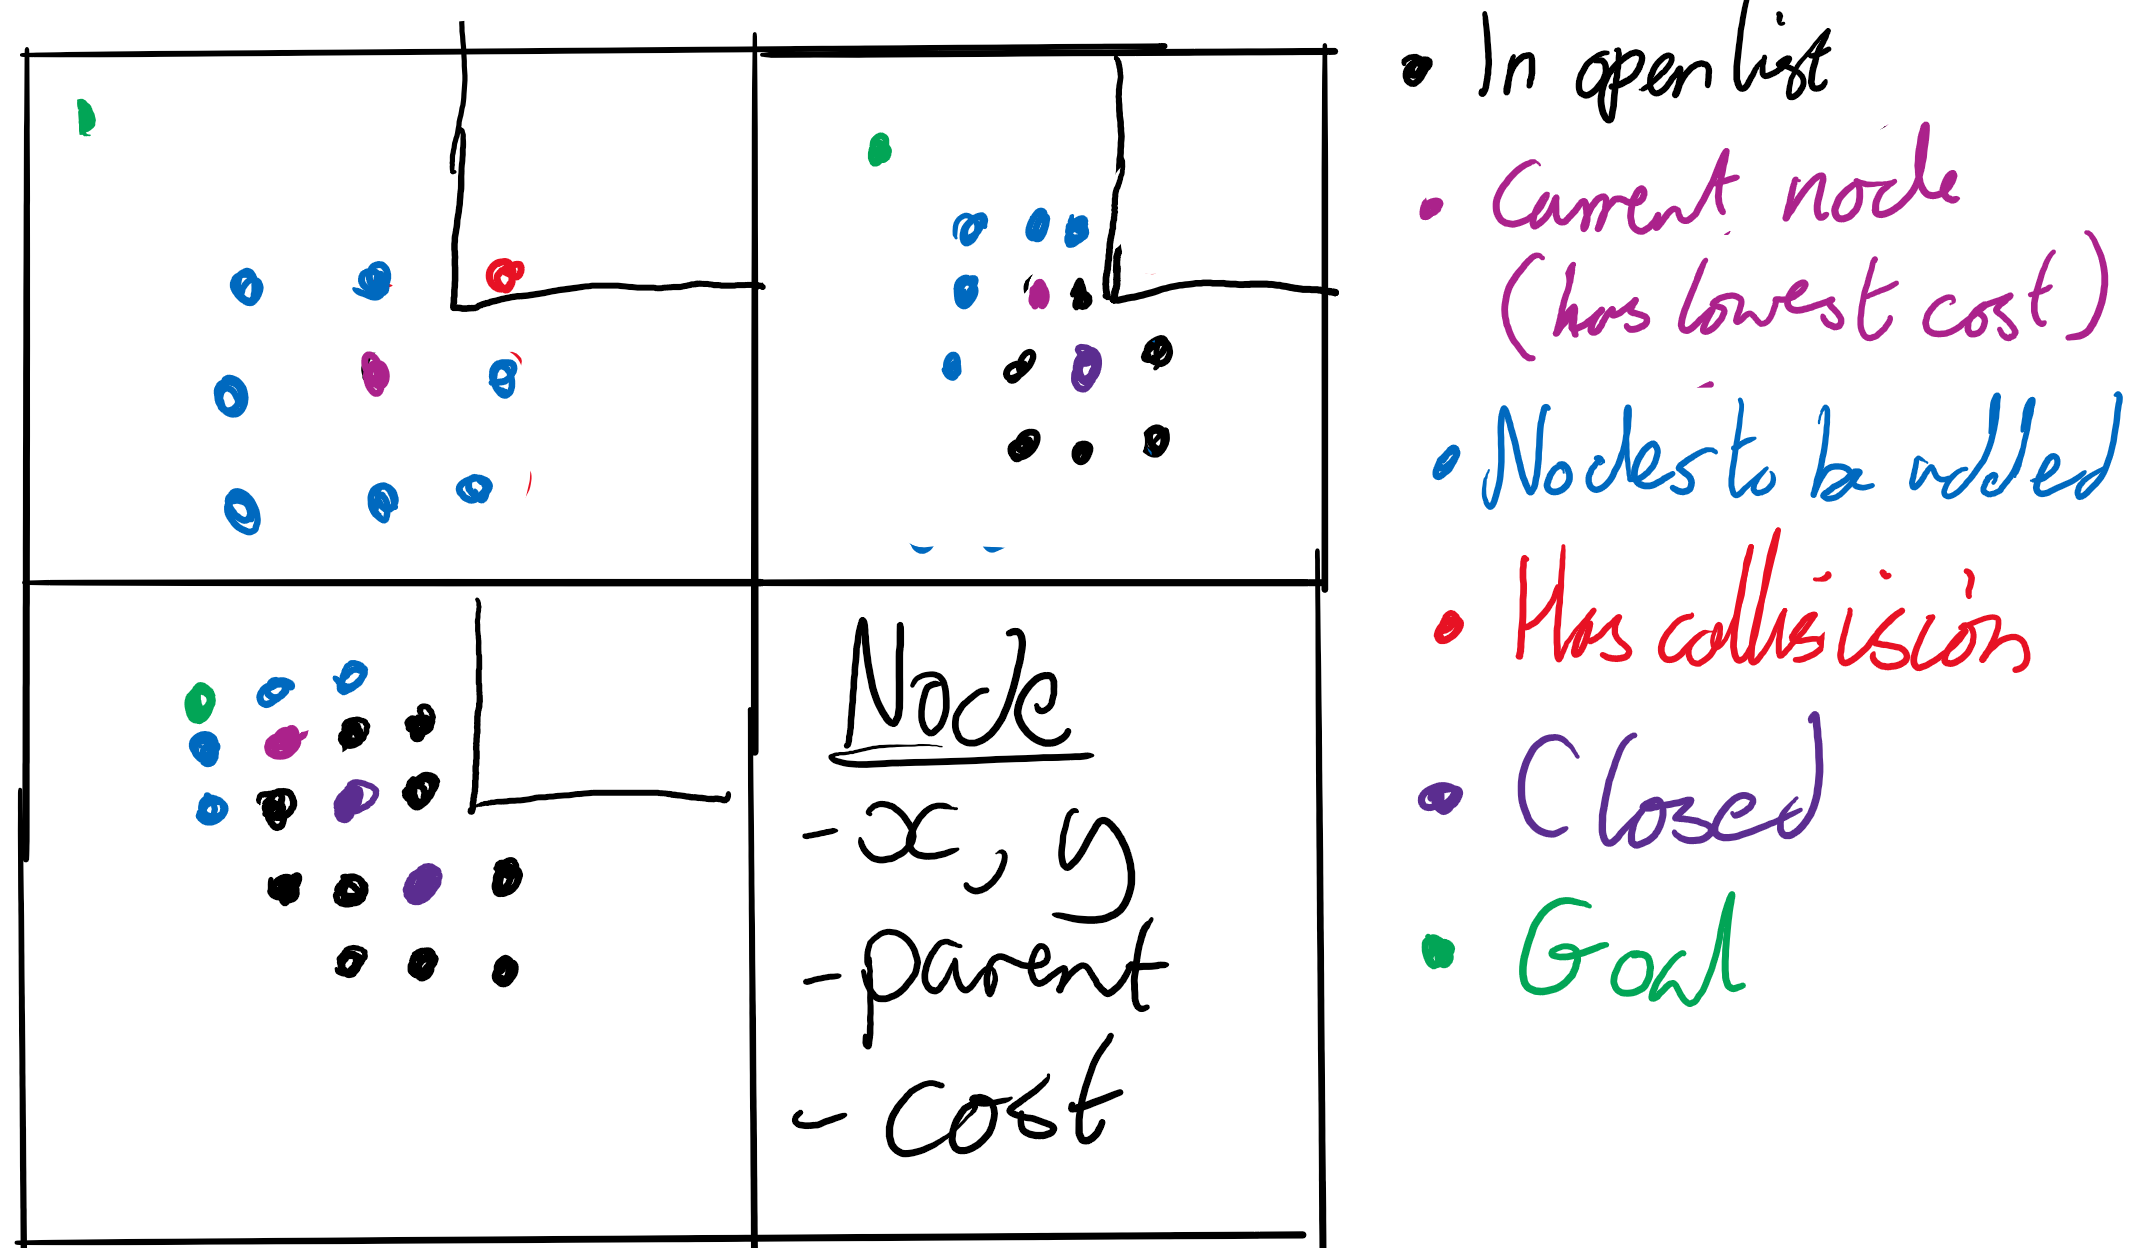 Node
- x, y
- parent
- cost
In open list
Current node
(has lowest cost)
Nodes to be added
Has collisision
Closed
Goal